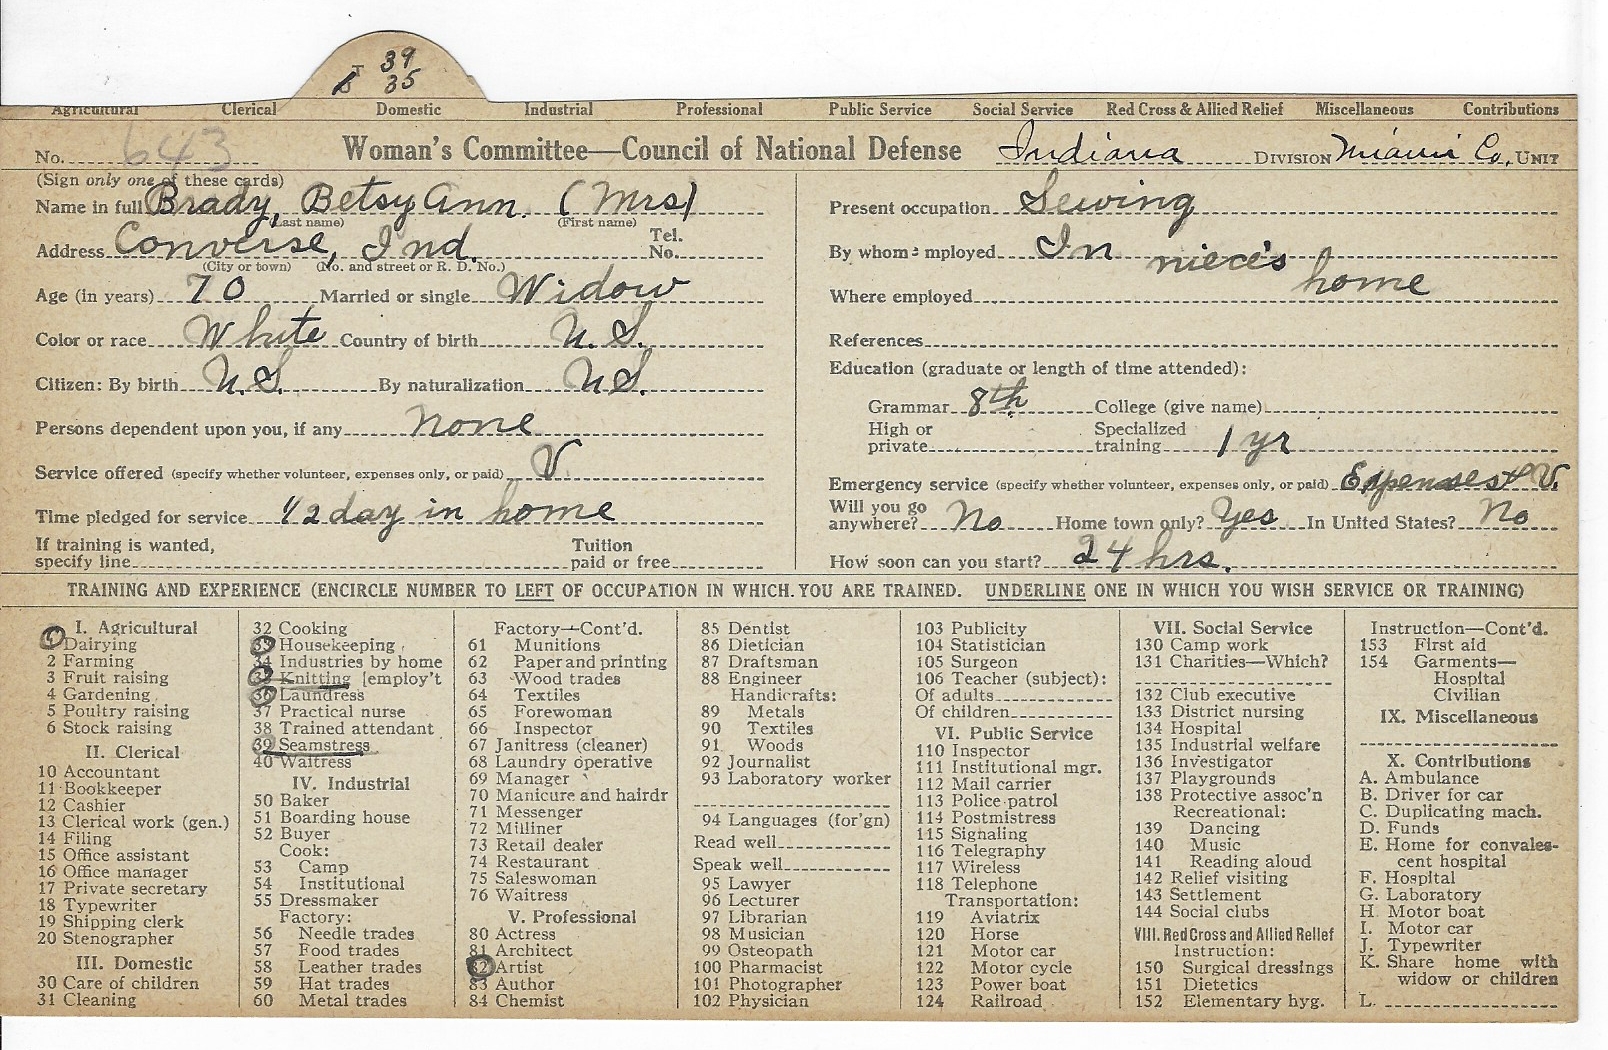 T 39
S 35
Agricultural Clerical Domestic Industrial Professional Public Service Social Service Red Cross & Allied Relief Miscellaneous Contributions
No. 643 Woman's Committee—Council of National Defense Indiana DIVISION Miami Co, UNIT
(Sign only one of these cards)
Name in full Brady, Betsy Ann. (Mrs)
(Last name) (First name)
Address Converse, Ind. Tel. No.
(City or town) (No. and street or R. D. No.)
Age (in years) 70 Married or single Widow
Color or race White Country of birth U.S.
Citizen: By birth U.S. By naturalization U.S.
Persons dependent upon you, if any none
Service offered (specify whether volunteer, expenses only, or paid) V
Time pledged for service 1/2 day in home
If training is wanted, specify line Tuition paid or free
Present occupation Sewing
By whom employed In niece's home
Where employed
References
Education (graduate or length of time attended):
Grammar 8th College (give name)
High or private Specialized training 1 yr
Emergency service (specify whether volunteer, expenses only, or paid) Expenses & V.
Will you go anywhere? No Home town only? Yes In United States? No
How soon can you start? 24 hrs.
TRAINING AND EXPERIENCE (ENCIRCLE NUMBER TO LEFT OF OCCUPATION IN WHICH YOU ARE TRAINED. UNDERLINE ONE IN WHICH YOU WISH SERVICE OR TRAINING)
I. Agricultural
1 Dairying
2 Farming
3 Fruit raising
4 Gardening
5 Poultry raising
6 Stock raising
II. Clerical
10 Accountant
11 Bookkeeper
12 Cashier
13 Clerical work (gen.)
14 Filing
15 Office assistant
16 Office manager
17 Private secretary
18 Typewriter
19 Shipping clerk
20 Stenographer
III. Domestic
30 Care of children
31 Cleaning
32 Cooking
33 Housekeeping
34 Industries by home
35 Knitting [employ't
36 Laundress
37 Practical nurse
38 Trained attendant
39 Seamstress
40 Waitress
IV. Industrial
50 Baker
51 Boarding house
52 Buyer
Cook:
53 Camp
54 Institutional
55 Dressmaker
Factory:
56 Needle trades
57 Food trades
58 Leather trades
59 Hat trades
60 Metal trades
Factory—Cont'd.
61 Munitions
62 Paper and printing
63 Wood trades
64 Textiles
65 Forewoman
66 Inspector
67 Janitress (cleaner)
68 Laundry operative
69 Manager
70 Manicure and hairdr
71 Messenger
72 Milliner
73 Retail dealer
74 Restaurant
75 Saleswoman
76 Waitress
V. Professional
80 Actress
81 Architect
82 Artist
83 Author
84 Chemist
85 Dentist
86 Dietician
87 Draftsman
88 Engineer
Handicrafts:
89 Metals
90 Textiles
91 Woods
92 Journalist
93 Laboratory worker
94 Languages (for'gn)
Read well
Speak well
95 Lawyer
96 Lecturer
97 Librarian
98 Musician
99 Osteopath
100 Pharmacist
101 Photographer
102 Physician
103 Publicity
104 Statistician
105 Surgeon
106 Teacher (subject):
Of adults
Of children
VI. Public Service
110 Inspector
111 Institutional mgr.
112 Mail carrier
113 Police patrol
114 Postmistress
115 Signaling
116 Telegraphy
117 Wireless
118 Telephone
Transportation:
119 Aviatrix
120 Horse
121 Motor car
122 Motor cycle
123 Power boat
124 Railroad
VII. Social Service
130 Camp work
131 Charities—Which?
132 Club executive
133 District nursing
134 Hospital
135 Industrial welfare
136 Investigator
137 Playgrounds
138 Protective assoc'n
Recreational:
139 Dancing
140 Music
141 Reading aloud
142 Relief visiting
143 Settlement
144 Social clubs
VIII. Red Cross and Allied Relief
Instruction:
150 Surgical dressings
151 Dietetics
152 Elementary hyg.
Instruction—Cont'd.
153 First aid
154 Garments—
Hospital
Civilian
IX. Miscellaneous
X. Contributions
A. Ambulance
B. Driver for car
C. Duplicating mach.
D. Funds
E. Home for convales-
cent hospital
F. Hospital
G. Laboratory
H. Motor boat
I. Motor car
J. Typewriter
K. Share home with
widow or children
L.